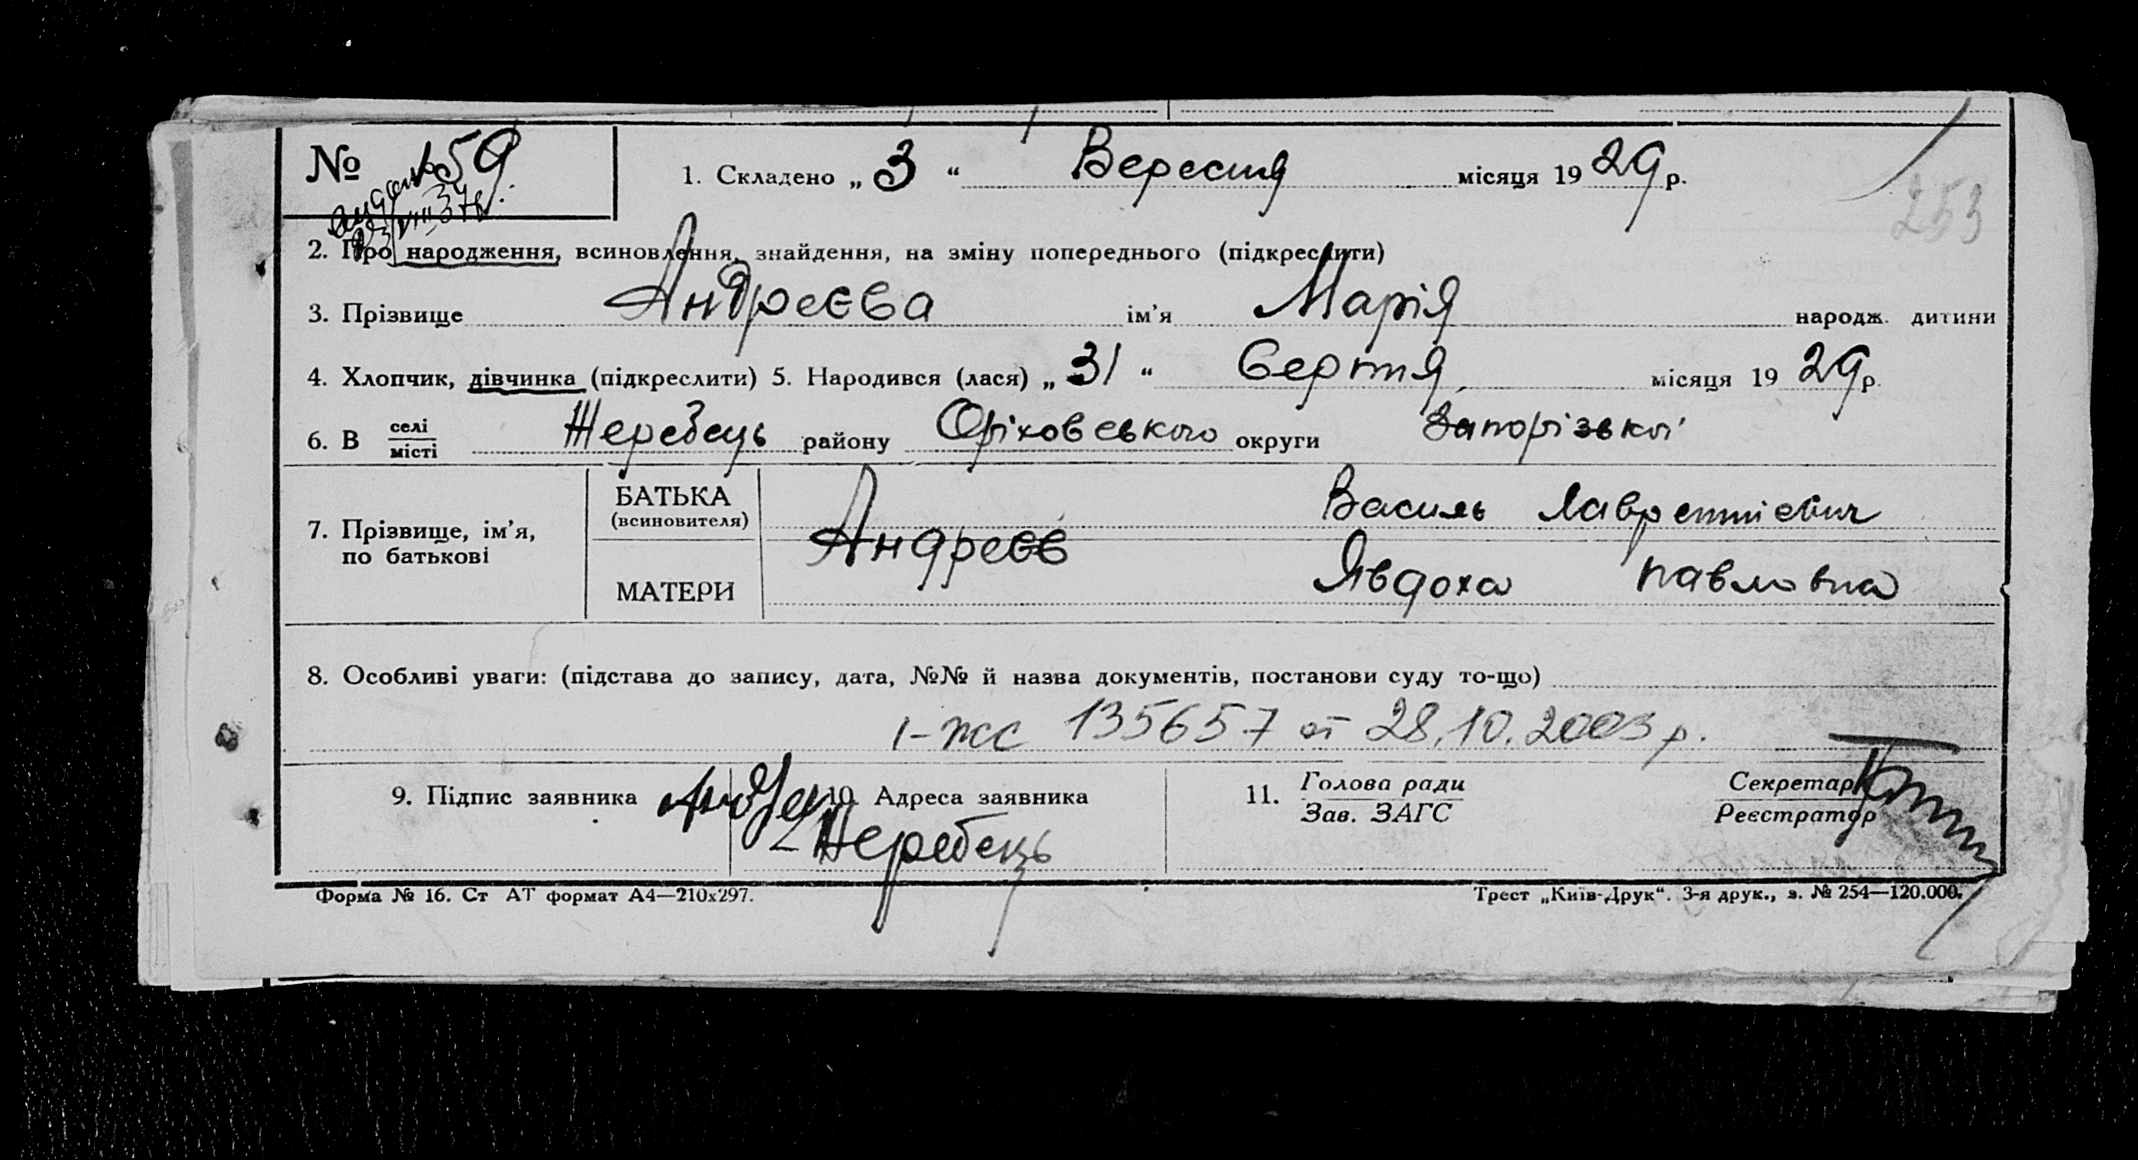 № 159
1. Складено „ 3 “ Вересня місяця 1929 р.
видан
23/VIII 37р.
253
2. Про народження, всиновлення, знайдення, на зміну попереднього (підкреслити)
3. Прізвище Андреєва ім’я Марія народж. дитини
4. Хлопчик, дівчинка (підкреслити) 5. Народився (лася) „ 31 “ Серпня місяця 1929 р.
6. В селі Жеребець району Оріховського округи Запорізької
місті
БАТЬКА Василь Лаврентієвич
(всиновителя)
7. Прізвище, ім’я, Андреєв
по батькові
МАТЕРИ Явдоха Павловна
8. Особливі уваги: (підстава до запису, дата, №№ й назва документів, постанови суду то-що)
І-ЖС 135657 от 28.10.2003 р.
9. Підпис заявника 10. Адреса заявника 11. Голова ради Секретар
Зав. ЗАГС Реєстратор
Жеребець
Форма № 16. Ст АТ формат А4—210х297. Трест „Київ-Друк“. 3-я друк., з. № 254—120.000.